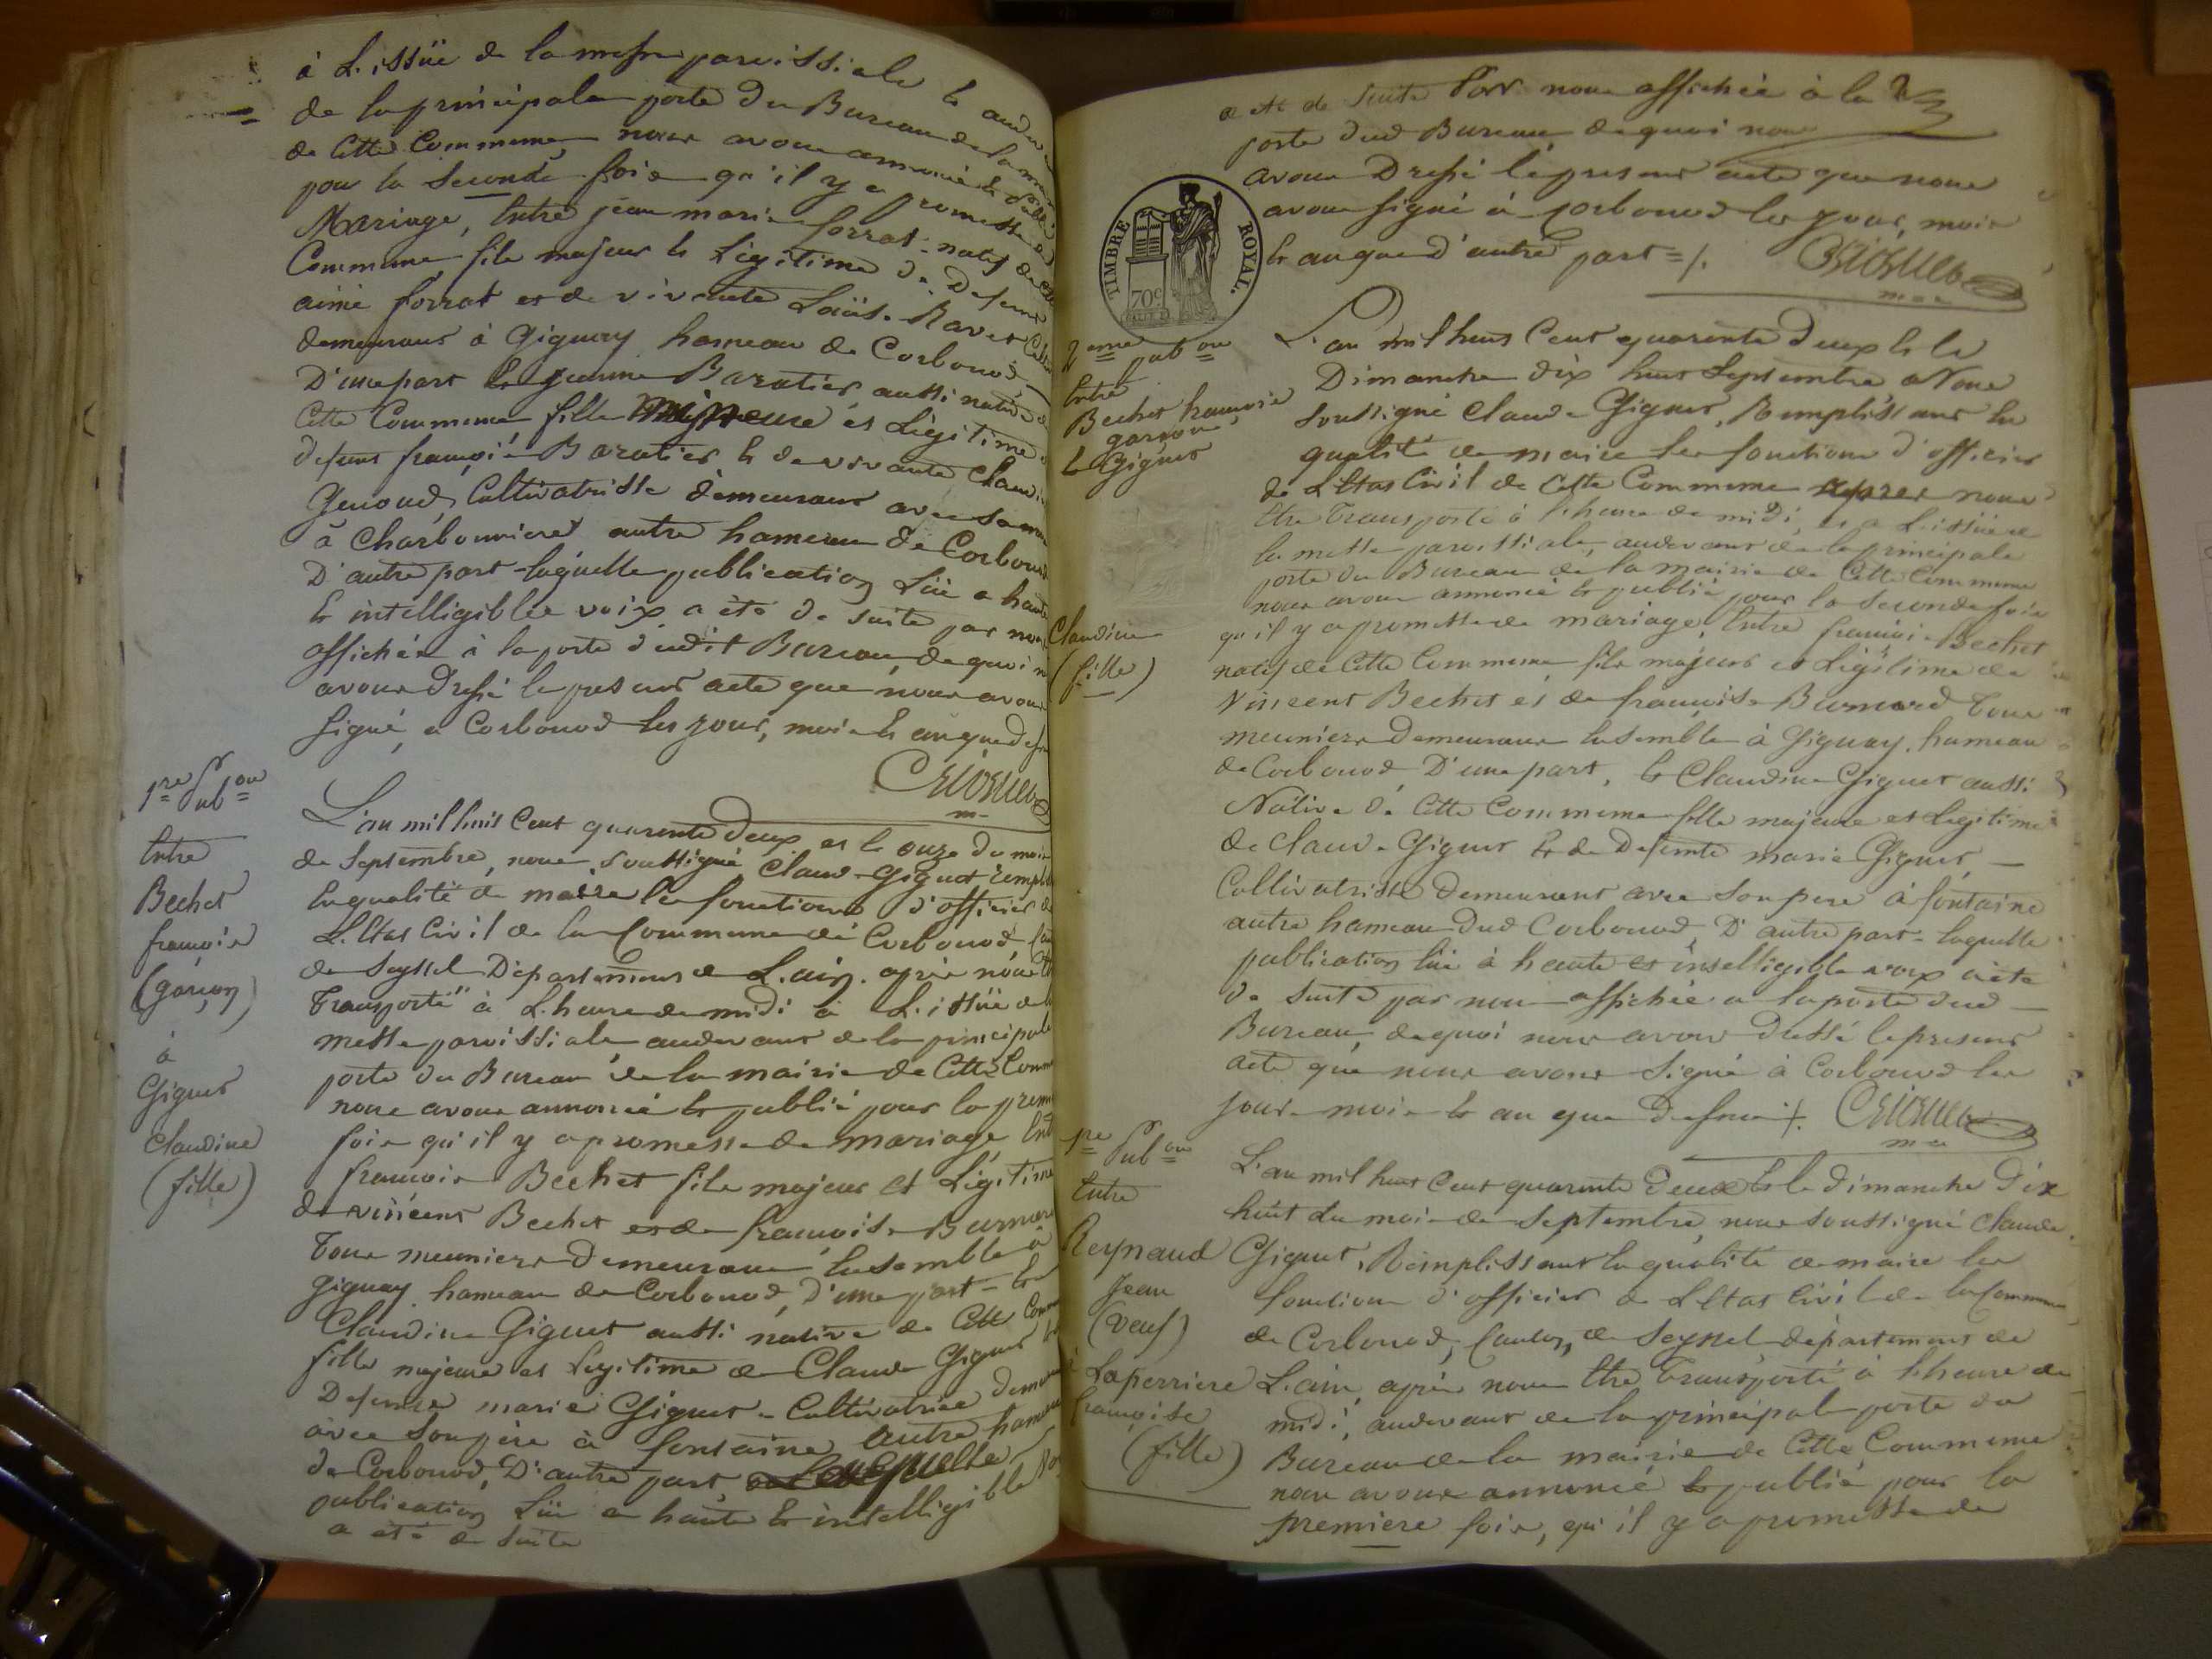 à L'issüe de la messe paroissiale & audev
de la principale porte du Bureau de la mai
de Cette Commune, nous avons annoncé & publié
pour la Seconde fois qu'il y a promesse de
Mariage, Entre jean marie forrat natif de Cette
Commune fils majeur & Légitime de Defunt
aimé forrat et de vivante Loüise Ravet
demeurant à Gignay hameau de Corbonod
D'une part & jeanne Baratier aussi native de
Cette Commune fille mineure et Légitime de
defunt françois Baratier & de vivante Claudi
Genoud, Cultivatrisse demeurant avec sa mere
à Charbonnieres autre hameau de Corbonod
D'autre part laquelle publication Lüe a haute
& intelligible voix a été de suite par nous
affichée à la porte dudit Bureau, de quoi n
avons Dressé le present acte que nous avons
signé, a Corbonod les jour, mois & an que def
m.
1re Pubon
Entre
Bechet
françois
(garçon)
à
Giguet
Claudine
(fille)
L'an mil huit Cent quarante deux et le onze du mois
de Septembre, nous soussigné Claude Giguet rempli
la qualité de maire les fonctions d'officier de
L'Etat Civil de la Commune de Corbonod Can
de Seyssel Departement de L'ain. après nous Etre
Transporté à L'heure de midi à L'issüe de
messe paroissiale audevant de la principale
porte du Bureau de la mairie de Cette Comm
nous avons annoncé & publié pour la premi
fois qu'il y a promesse de mariage Entre
francois Bechet fils majeur et Légitime
de vincent Bechet et de françoise Burnard
Tous meuniers demeurant Ensemble à
Gignay hameau de Corbonod, d'une part &
Claudine Giguet aussi native de Cette Comm
fille majeure et Legitime de Claude Giguet &
Defunte marie Giguet Cultivatrice demeurant
avec son père à fontaine autre hameau
de Corbonod, D'autre part laquelle
publication Lüe a haute & intelligible vo
a été de suite
a été de suite Par nous affichée à la
porte dud Bureau, de quoi nous
avons Dressé le present acte que nous
avons signé à Corbonod les jour, mois
& an que d'autre part =/.
TIMBRE ROYAL.
70c
2eme pubon
Entre
Bechet françois
garçon
& Giguet
Claudine
(fille)
L'an mil huit Cent quarante deux & le
Dimanche dix huit Septembre Nous
soussigné Claude Giguet, Remplissant En
qualité de maire les fonctions d'officier
de L'Etat Civil de Cette Commune apres nous
Etre Transporté à l'heure de midi, et a L'issüe de
la messe paroissiale, audevant de la principale
porte du Bureau de la mairie de Cette Commune
nous avons annoncé & publié pour la Seconde fois
qu'il y a promesse de mariage, Entre françois Bechet
natif de Cette Commune fils majeur et Légitime de
Vincent Bechet et de françoise Burnard Tous
meuniers Demeurant Ensemble à Gignay, hameau
de Corbonod, D'une part, & Claudine Giguet aussi
Native de Cette Commune fille majeure et Legitime
de Claude Giguet & de Defunte marie Giguet,
Cultivatrisse demeurant avec son pere à fontaine
autre hameau dud Corbonod, D'autre part laquelle
publication lüe à haute et intelligible voix a été
de suite par nous affichée a la porte dud
Bureau, de quoi nous avons dressé le present
acte que nous avons signé à Corbonod les
jour mois & an que Defunt /.
1re Pubon
Entre
Reynaud
Jean
(veuf)
à Laperriere
françoise
(fille)
L'an mil huit Cent quarante deux & le dimanche dix
huit du mois de Septembre, nous soussigné Claude
Giguet, Remplissant En qualité de maire les
fonctions d'officier de L'Etat Civil de la Commune
de Corbonod, Canton de Seyssel departement de
L'ain, après nous Etre Transporté à l'heure de
midi, audevant de la principale porte du
Bureau de la mairie de Cette Commune
nous avons annoncé & publié pour la
premiere fois, qu'il y a promesse de